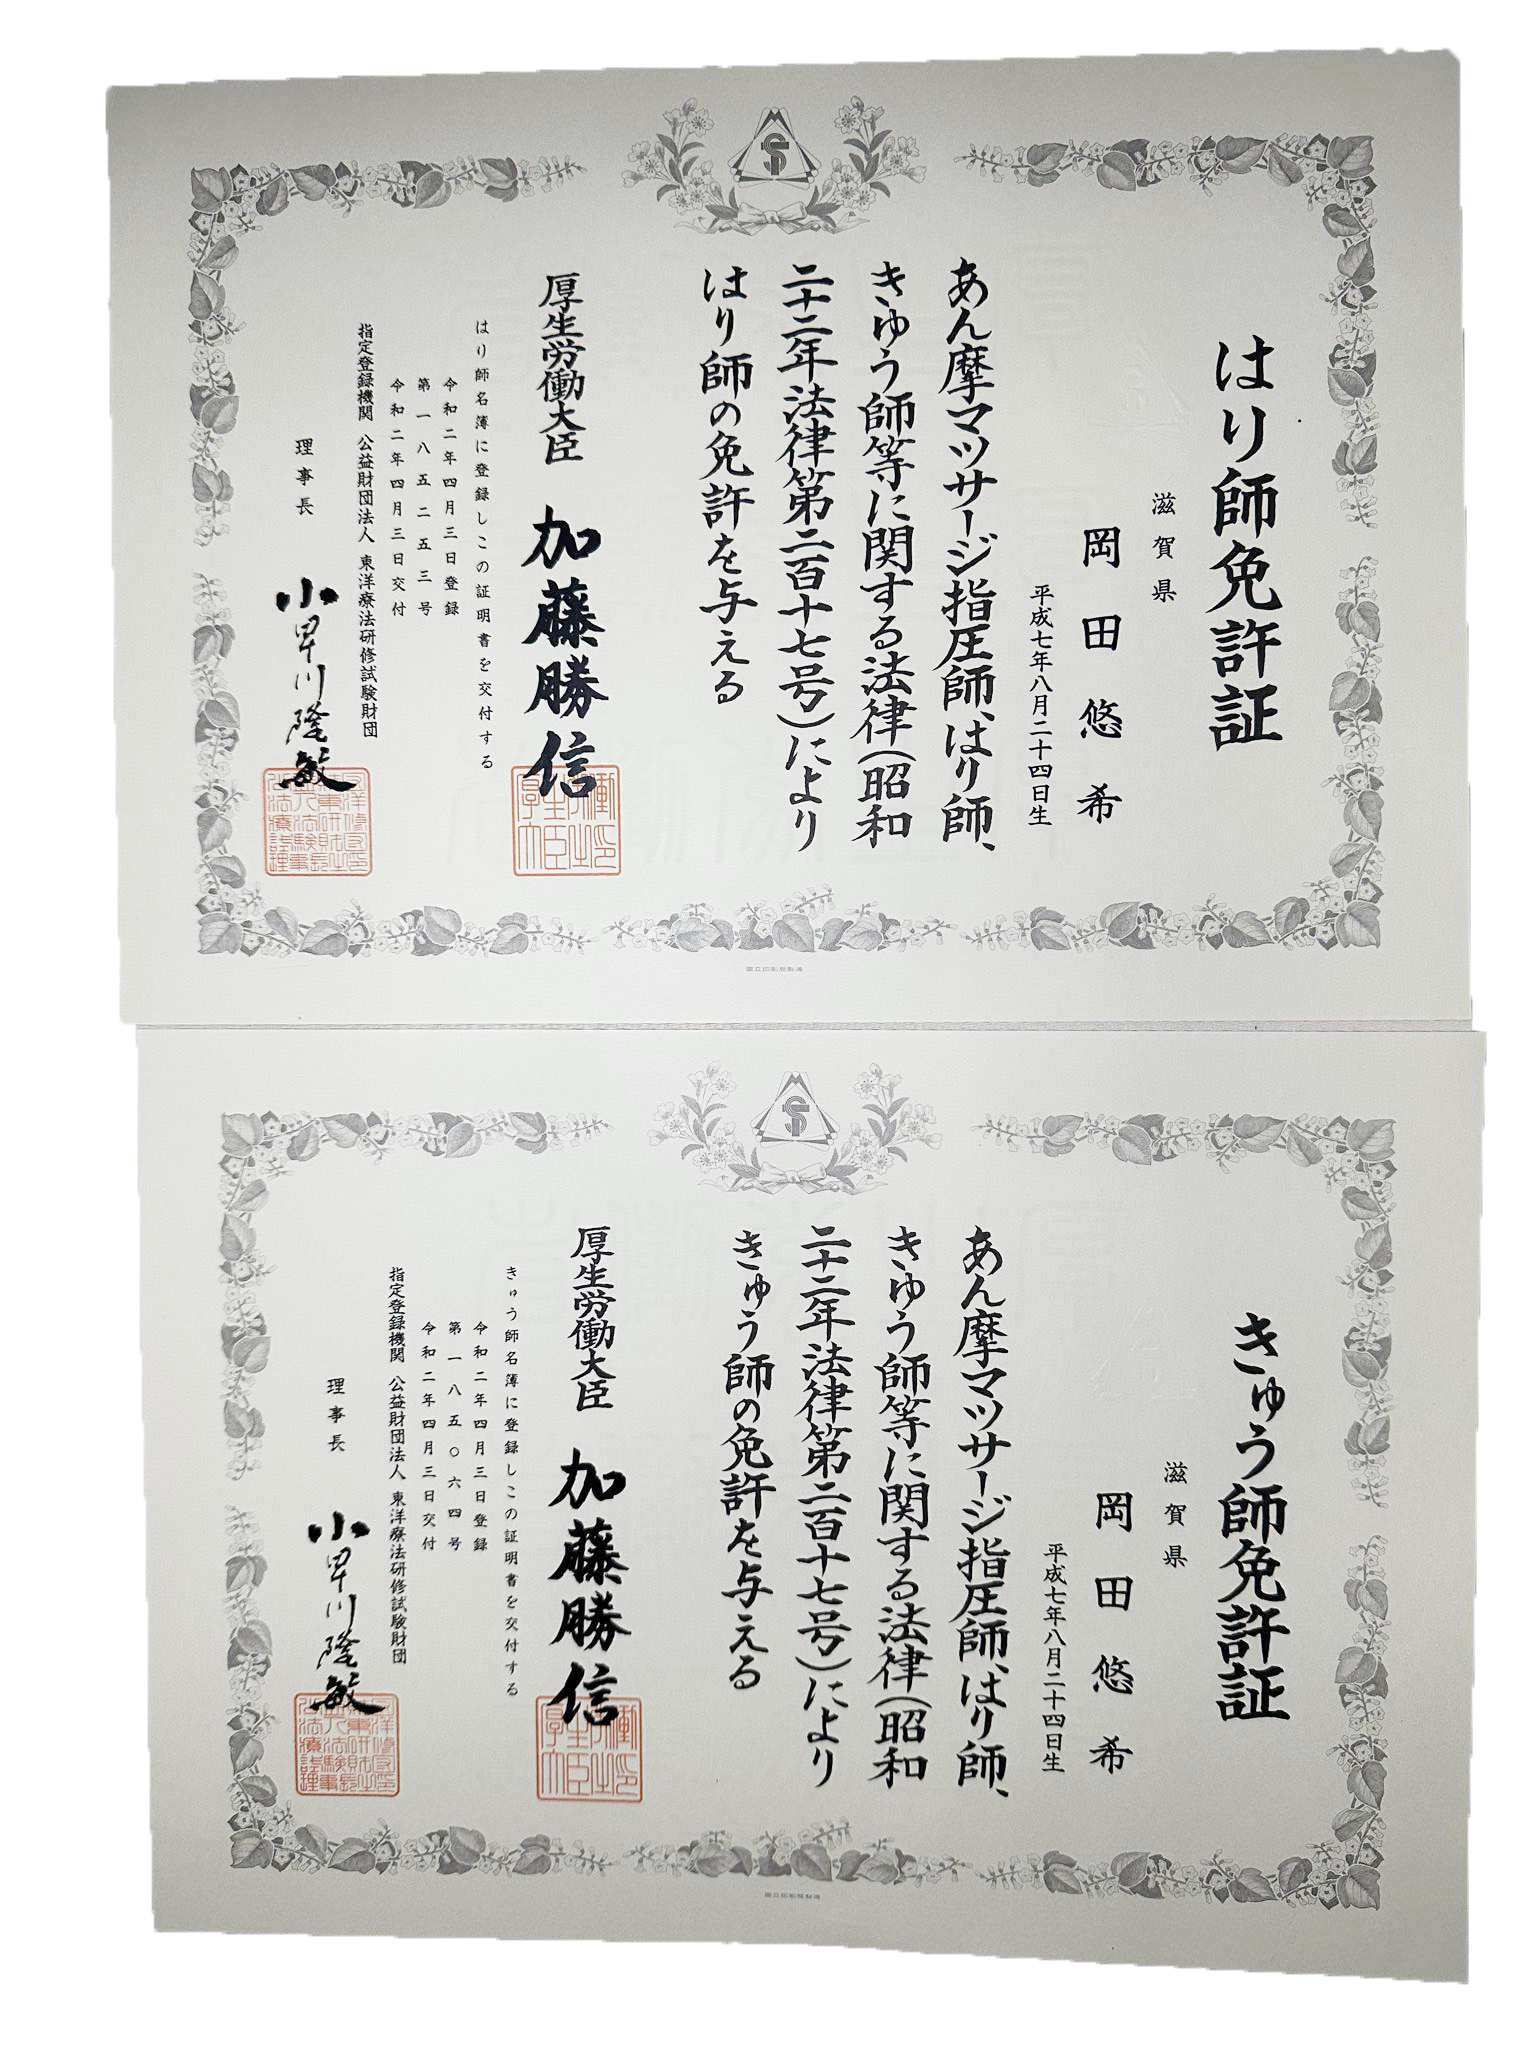 はり師免許証
滋賀県
岡田悠希
平成七年八月二十四日生
あん摩マツサージ指圧師、はり師、
きゆう師等に関する法律(昭和
二十二年法律第二百十七号)により
はり師の免許を与える
厚生労働大臣 加藤勝信
はり師名簿に登録しこの証明書を交付する
令和二年四月三日登録
第一八五二五三号
令和二年四月三日交付
指定登録機関 公益財団法人 東洋療法研修試験財団
理事長 小川隆敏
国立印刷局製造
きゅう師免許証
滋賀県
岡田悠希
平成七年八月二十四日生
あん摩マツサージ指圧師、はり師、
きゆう師等に関する法律(昭和
二十二年法律第二百十七号)により
きゅう師の免許を与える
厚生労働大臣 加藤勝信
きゅう師名簿に登録しこの証明書を交付する
令和二年四月三日登録
第一八五〇六四号
令和二年四月三日交付
指定登録機関 公益財団法人 東洋療法研修試験財団
理事長 小川隆敏
国立印刷局製造